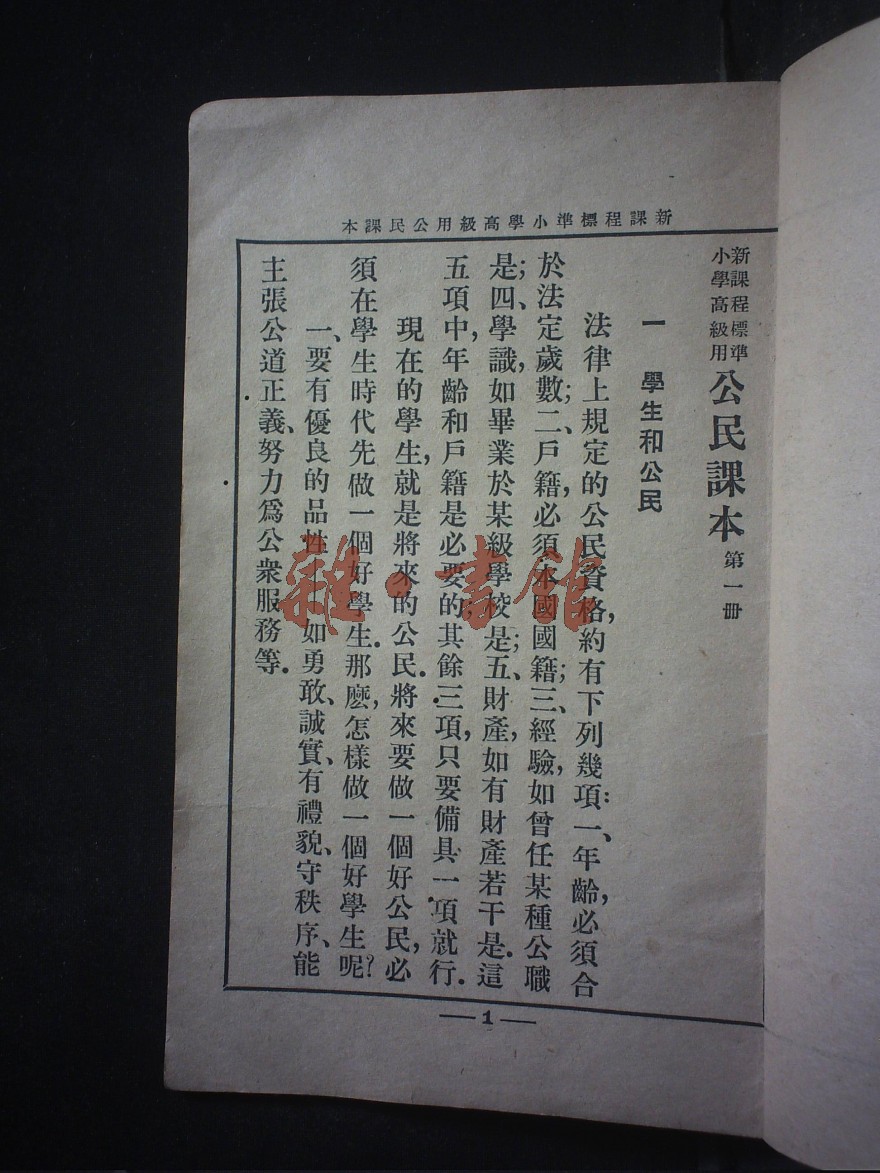 新課程標準小學高級用公民課本
新課程標準
小學高級用
公民課本 第一冊
一 學生和公民
法律上規定的公民資格,約有下列幾項:一、年齡,必須合
於法定歲數;二、戶籍,必須本國國籍;三、經驗,如曾任某種公職
是;四、學識,如畢業於某級學校是;五、財產,如有財產若干是.這
五項中,年齡和戶籍是必要的,其餘三項,只要備具一項就行.
現在的學生,就是將來的公民.將來要做一個好公民,必
須在學生時代先做一個好學生.那麽,怎樣做一個好學生呢?
一、要有優良的品性 如勇敢、誠實、有禮貌、守秩序、能
主張公道正義、努力爲公衆服務等.
—1—
雜·書館